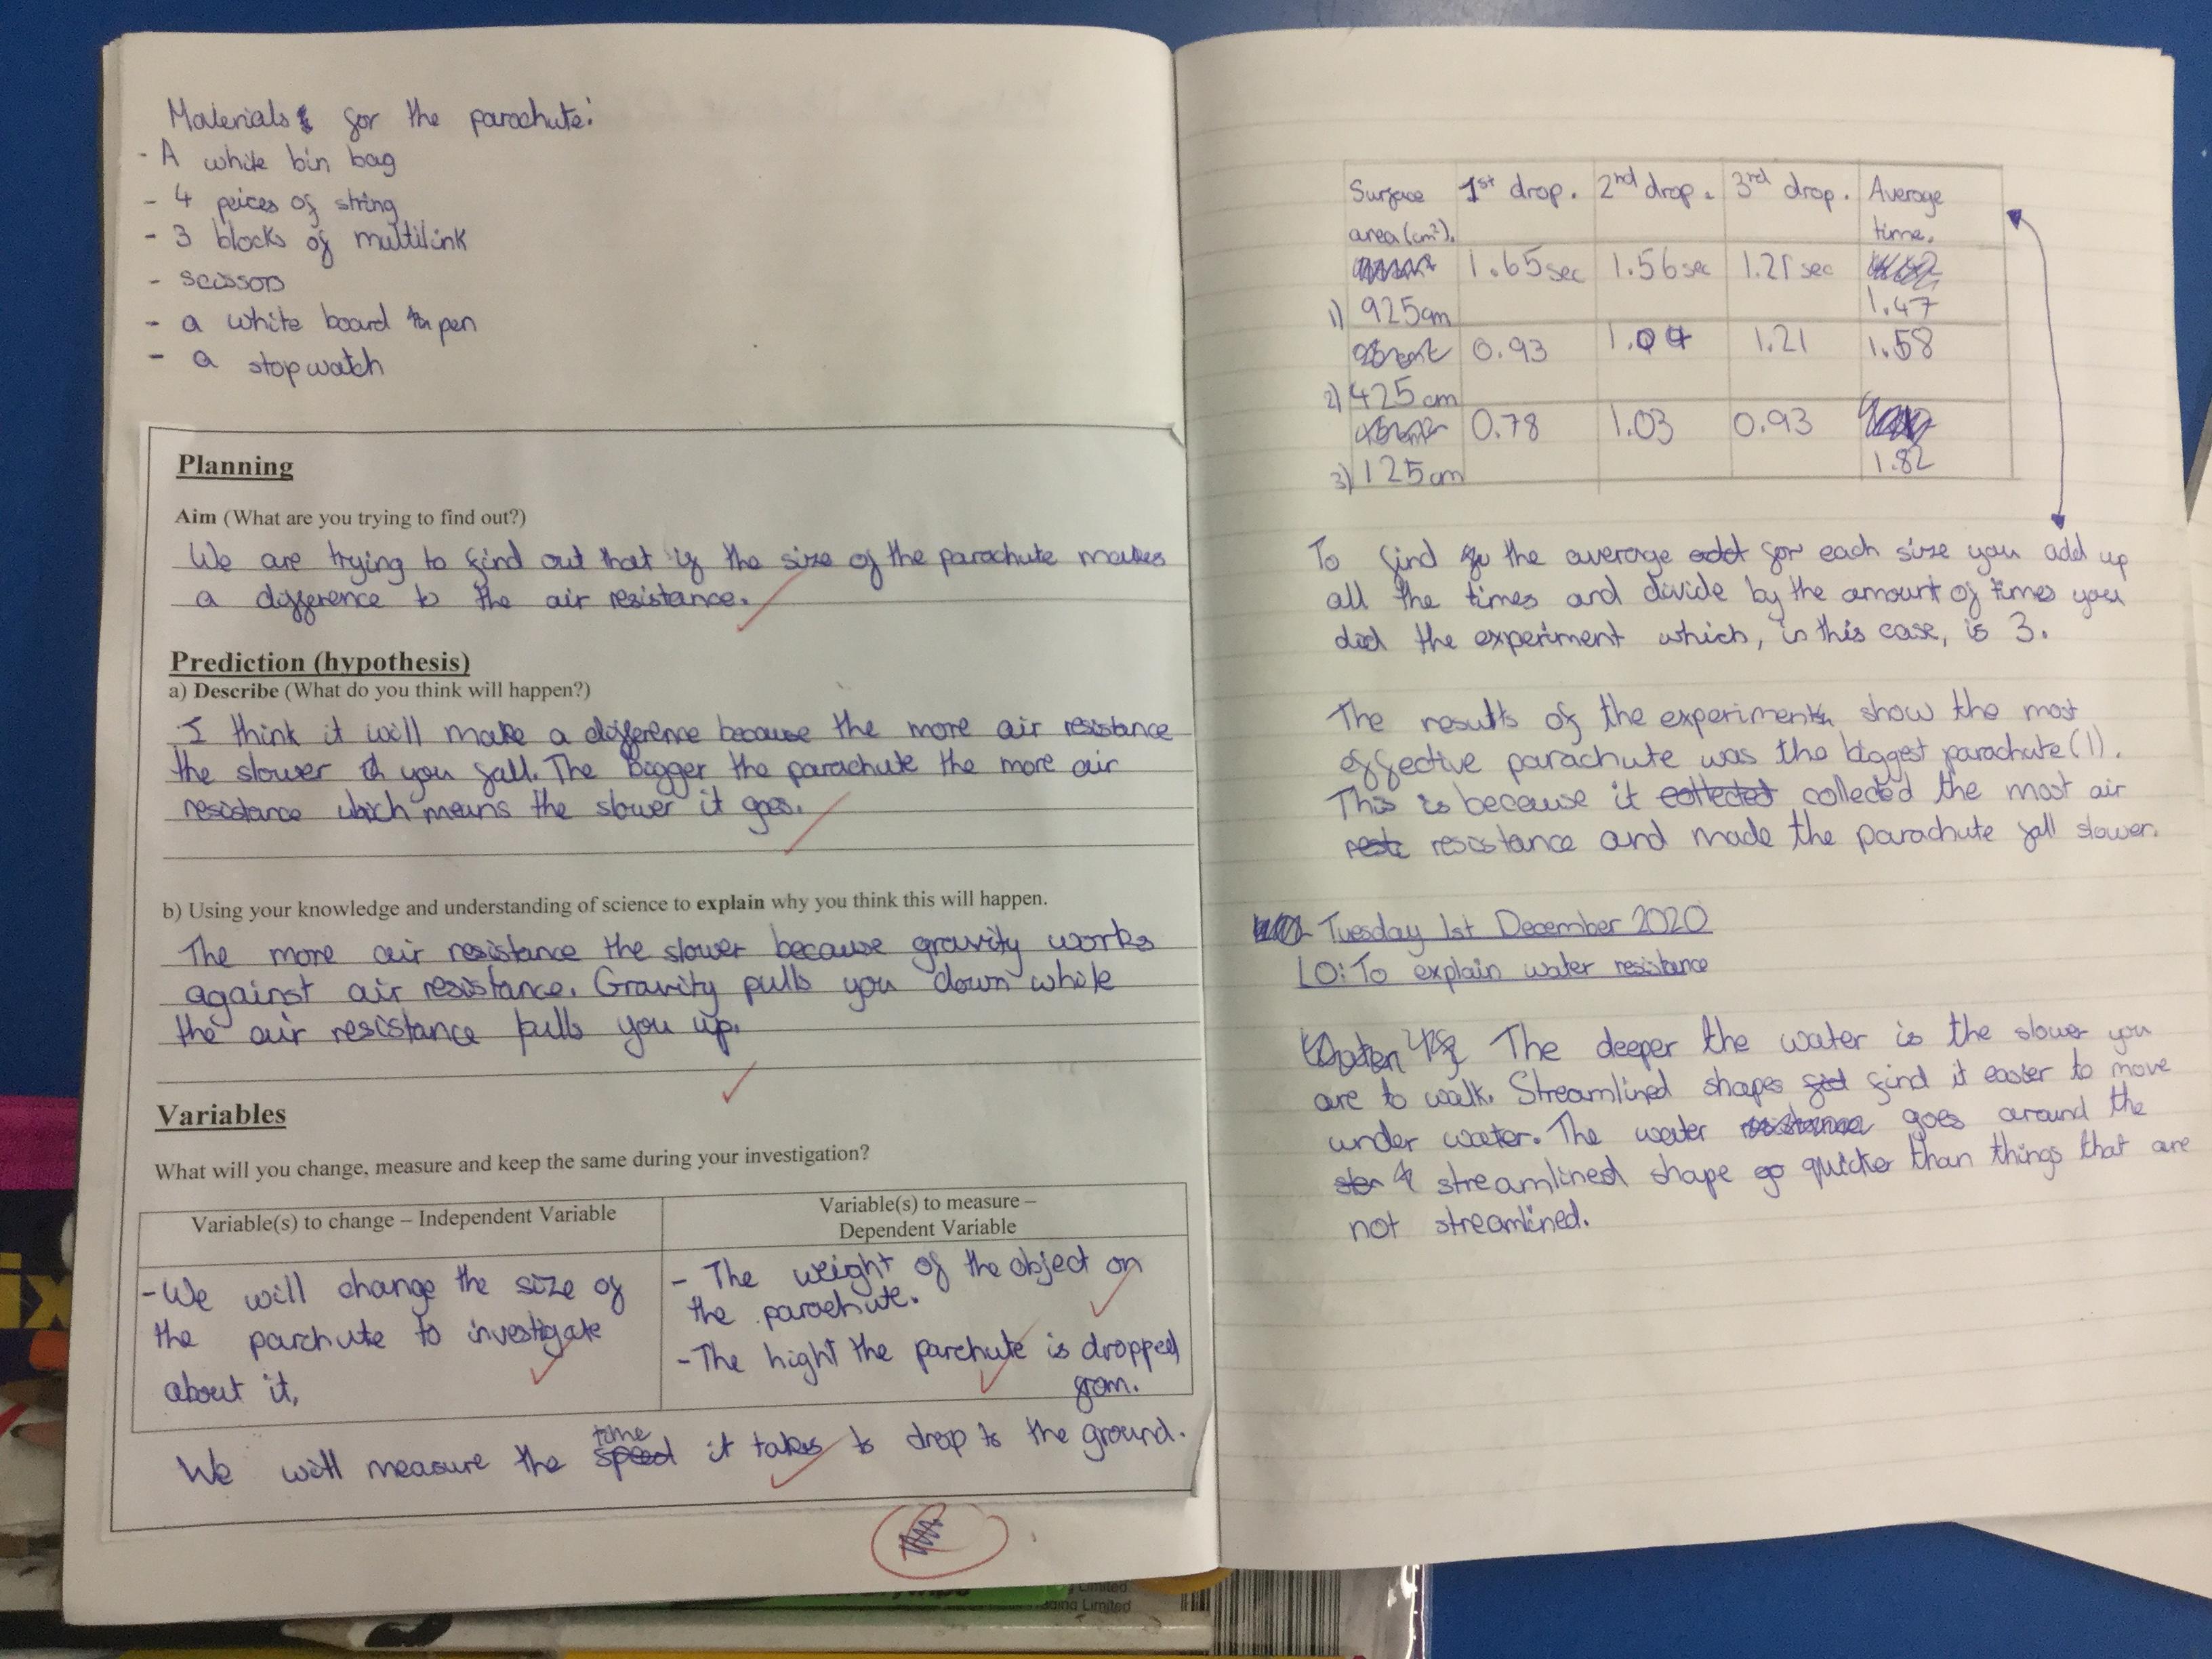 Materials for the parachute:
- A white bin bag
- 4 peices of string
- 3 blocks of multilink
- scissors
- a white board pen
- a stopwatch
Planning
Aim (What are you trying to find out?)
We are trying to find out that if the size of the parachute makes
a difference to the air resistance.
Prediction (hypothesis)
a) Describe (What do you think will happen?)
I think it will make a difference because the more air resistance
the slower you fall. The bigger the parachute the more air
resistance which means the slower it goes.
b) Using your knowledge and understanding of science to explain why you think this will happen.
The more air resistance the slower because gravity works
against air resistance. Gravity pulls you down while
the air resistance pulls you up.
Variables
What will you change, measure and keep the same during your investigation?
Variable(s) to change – Independent Variable
Variable(s) to measure –
Dependent Variable
- We will change the size of
the parchute to investigate
about it.
- The weight of the object on
the parachute.
- The hight the parchute is dropped
from.
time
We will measure the speed it takes to drop to the ground.
Surface area (cm²). 1st drop. 2nd drop. 3rd drop. Average time.
1) 925cm 1.65sec 1.56sec 1.21sec 1.47
2) 425cm 0.93 1.04 1.21 1.58
3) 125cm 0.78 1.03 0.93 1.82
To find the average add for each size you add up
all the times and divide by the amount of times you
did the experiment which, in this case, is 3.
The results of the experiment show the most
effective parachute was the biggest parachute (1).
This is because it collected collected the most air
resistance and made the parachute fall slower.
Tuesday 1st December 2020
LO: To explain water resistance
The deeper the water is the slower you
are to walk. Streamlined shapes find it easier to move
under water. The water resistance goes around the
streamlined shape go quicker than things that are
not streamlined.
Limited
Limited